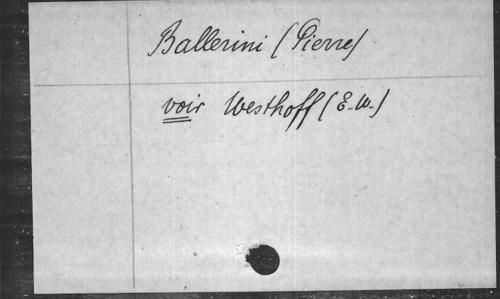 Ballerini (Pierre)
voir Westhoff (E.W.)